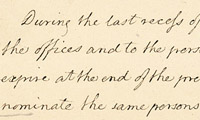 During the last recess of
the offices and to the pers
expire at the end of the pre
nominate the same persons